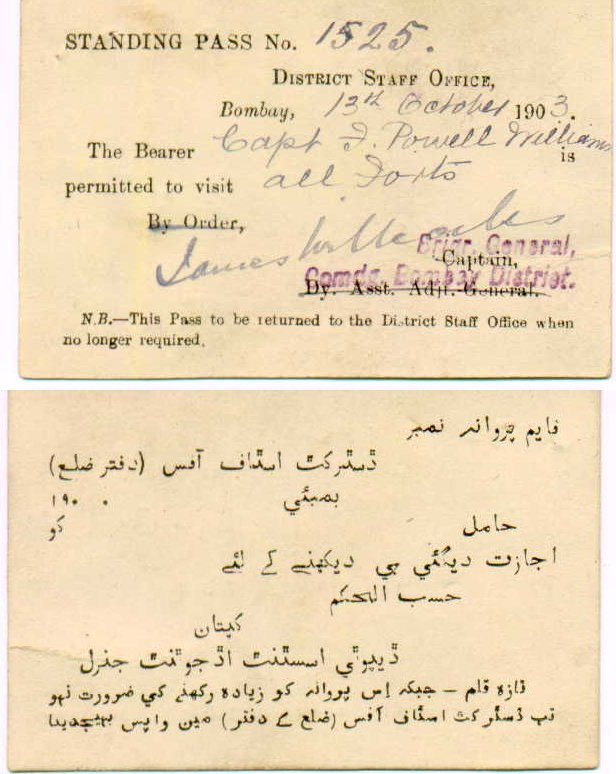 STANDING PASS No. 1525.
DISTRICT STAFF OFFICE,
Bombay, 13th October 1903.
The Bearer Capt F. Powell Williams is
permitted to visit all Forts
By Order,
James Willcocks
Brigr. General,
Captain,
Comdg. Bombay District.
Dy. Asst. Adjt.-General.
N.B.—This Pass to be returned to the District Staff Office when
no longer required.
قايم پڙوانہ نمبر
ڈسٹرکٹ اسٹاف آفس (دفتر ضلع)
بمبئي ۱۹۰ .
حامل کو
اجازت دیگئي ہی دیکھنے کے لئے
حسب الحکم
کپتان
ڈیپوٹي اسسٹنٹ اڈجوٹنٹ جنرل
تازہ قلم — جبکہ اِس پروانہ کو زیادہ رکھنے کي ضرورت نہو
تب ڈسٹرکٹ اسٹاف آفس (ضلع کے دفتر) مین واپس بھیجدینا